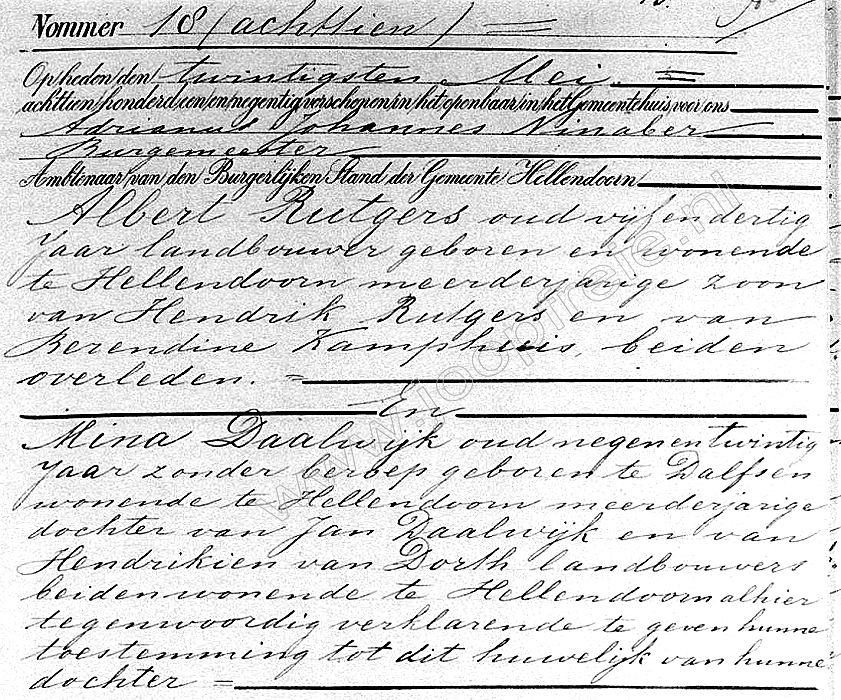 Nommer 18 (achttien)
Op heden den twintigsten Mei
achttien honderd een en negentig verschenen in het openbaar in het Gemeentehuis voor ons
Adrianus Johannes Ninaber
Burgemeester
Ambtenaar van den Burgerlijken Stand der Gemeente Hellendoorn
Albert Rutgers oud vijfendertig
Jaar landbouwer geboren en wonende
te Hellendoorn meerderjarige zoon
van Hendrik Rutgers en van
Berendine Kamphuis, beiden
overleden. =
En
Mina Daalwijk oud negenentwintig
Jaar zonder beroep geboren te Dalfsen
wonende te Hellendoorn meerderjarige
dochter van Jan Daalwijk en van
Hendrikien van Dorth landbouwers
beiden wonende te Hellendoorn alhier
tegenwoordig verklarende te geven hunne
toestemming tot dit huwelijk van hunne
dochter =
www.loopireie.nl